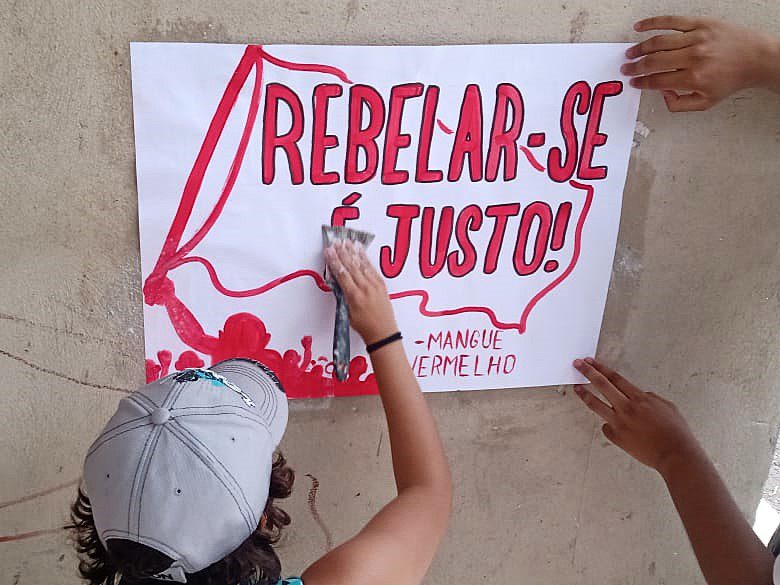 REBELAR-SE
É JUSTO!
-MANGUE
VERMELHO